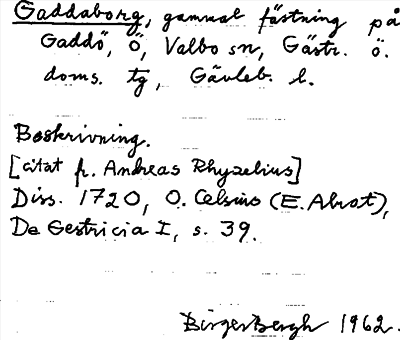 Gaddaborg, gammal fästning på
Gaddö, Ö, Valbo sn, Gästr. ö.
doms. tg, Gävleb. l.
Beskrivning.
[citat fr. Andreas Rhyzelius]
Diss. 1720, O. Celsius (E. Abrot),
De Gestricia I, s. 39.
Birger Bergh 1962.